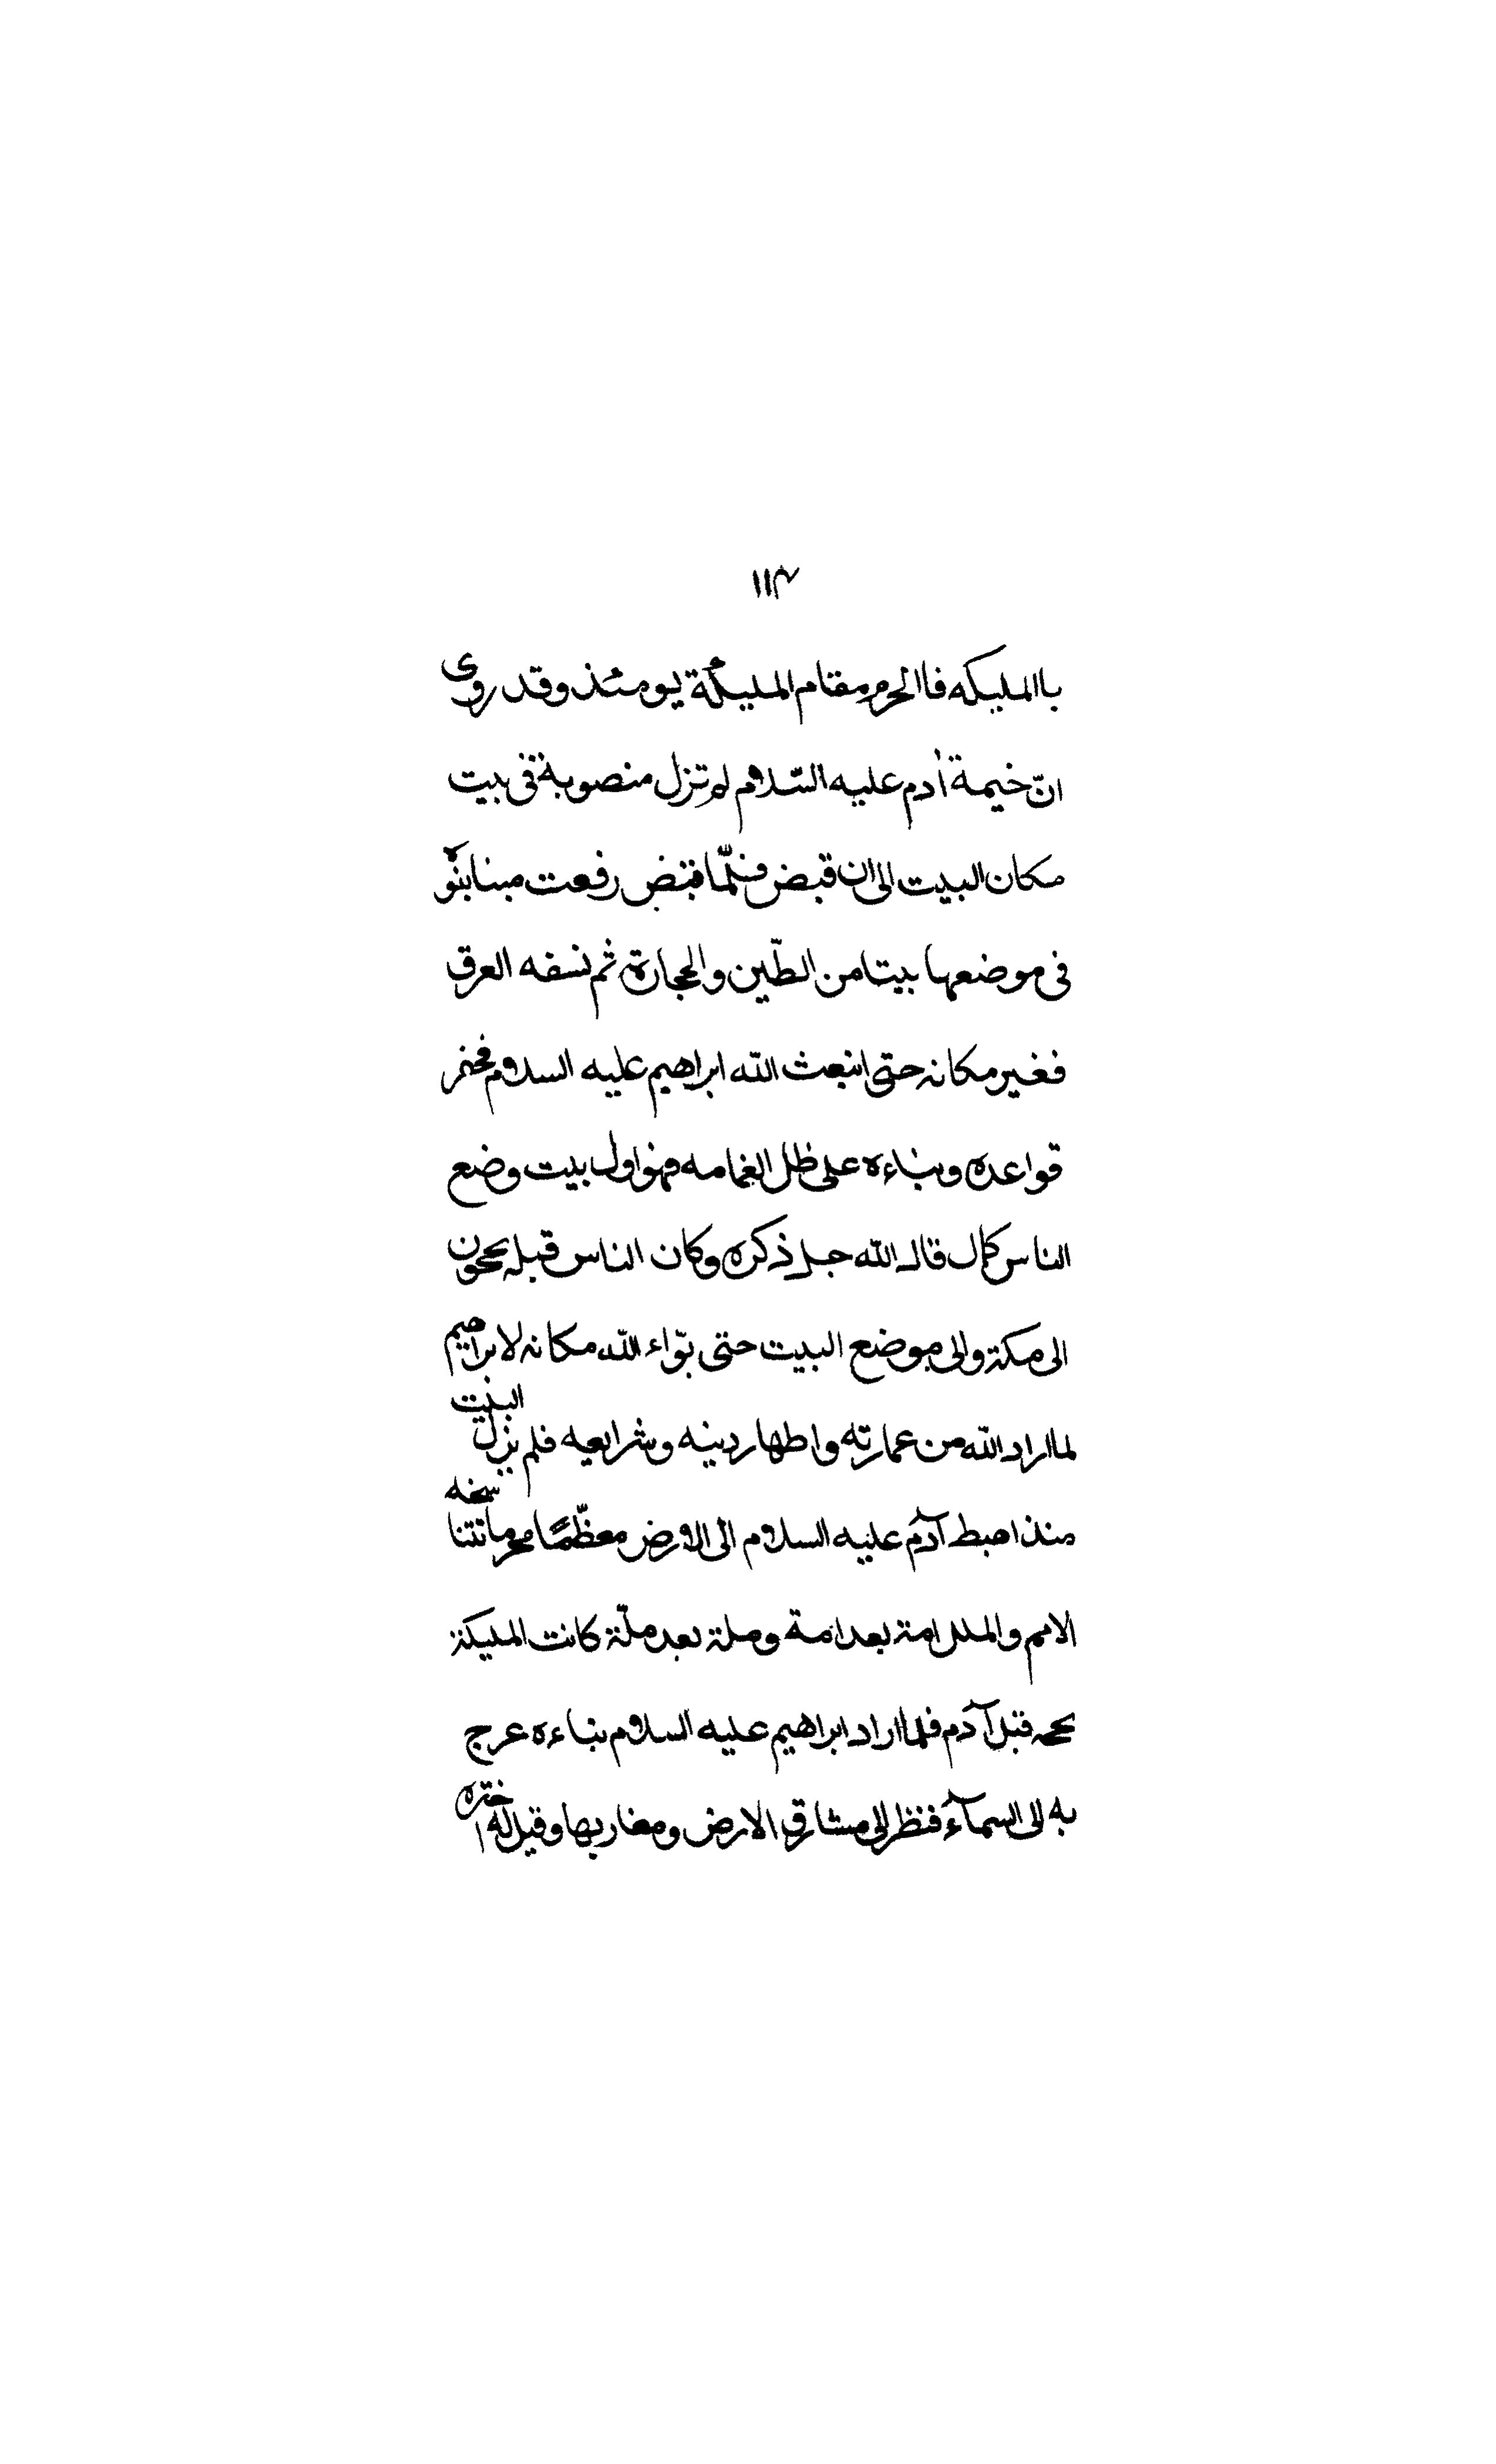 ١١٣
باالمليكه فاالحرم مقام المليكة يومئذ وقد روى
انّ خيمة أدم عليه السّلام لم تزل منصوبة فى بيت
مكان البيت الى ان قبض فلمّا قبض رفعت مبنا بنوا
فى موضعها بيتا من الطّين والحجارة ثم نسفه العرق
فغير مكانه حتى انبعث الله ابراهيم عليه السلام فحفر
قواعده وبناءه على ظل الغمامه فهوا اول بيت وضع
الناس كمال قال الله جل ذكره وكان الناس قبله يحجون
الى مكة والى موضع البيت حتى بوّاء الله مكانه لابراهيم
لما اراد الله من عمارته واطهار دينه وشرايعه فلم يزل البيت
منذ اهبط آدم عليه السلام الى الارض معظّمًا محرما تتنا سخه
الامم والملل امة بعد امة وملة بعد ملّة كانت المليكة
تحجه قبل آدم فلما اراد ابراهيم عليه السلام بناءه عرج
به الى السمآء فنظر الى مشارق الارض ومغاربها وقيل له اختره